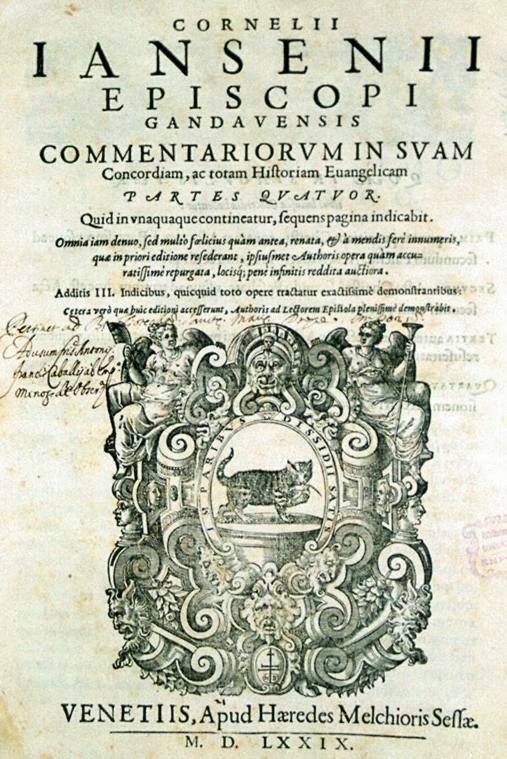 CORNELII
IANSENII
EPISCOPI
GANDAVENSIS
COMMENTARIORVM IN SVAM
Concordiam, ac totam Historiam Euangelicam
PARTES QVATVOR.
Quid in vnaquaque contineatur, sequens pagina indicabit.
Omnia iam denuo, sed multò fœlicius quàm antea, renata, & à mendis ferè innumeris,
quæ in priori editione resederant, ipsiusmet Authoris opera quàm accu
ratissimè repurgata, locisq; penè infinitis reddita auctiora.
Additis III. Indicibus, quicquid toto opere tractatur exactissimè demonstrantibus:
Cetera verò quæ huic editioni accesserunt, Authoris ad Lectorem Epistola plenissimè demonstrabit.
Pertinet ad
Ad usum fris Antonij
IMPARIBVS DISSIDII SATE
VENETIIS, Apud Hæredes Melchioris Sessæ.
M. D. LXXIX.